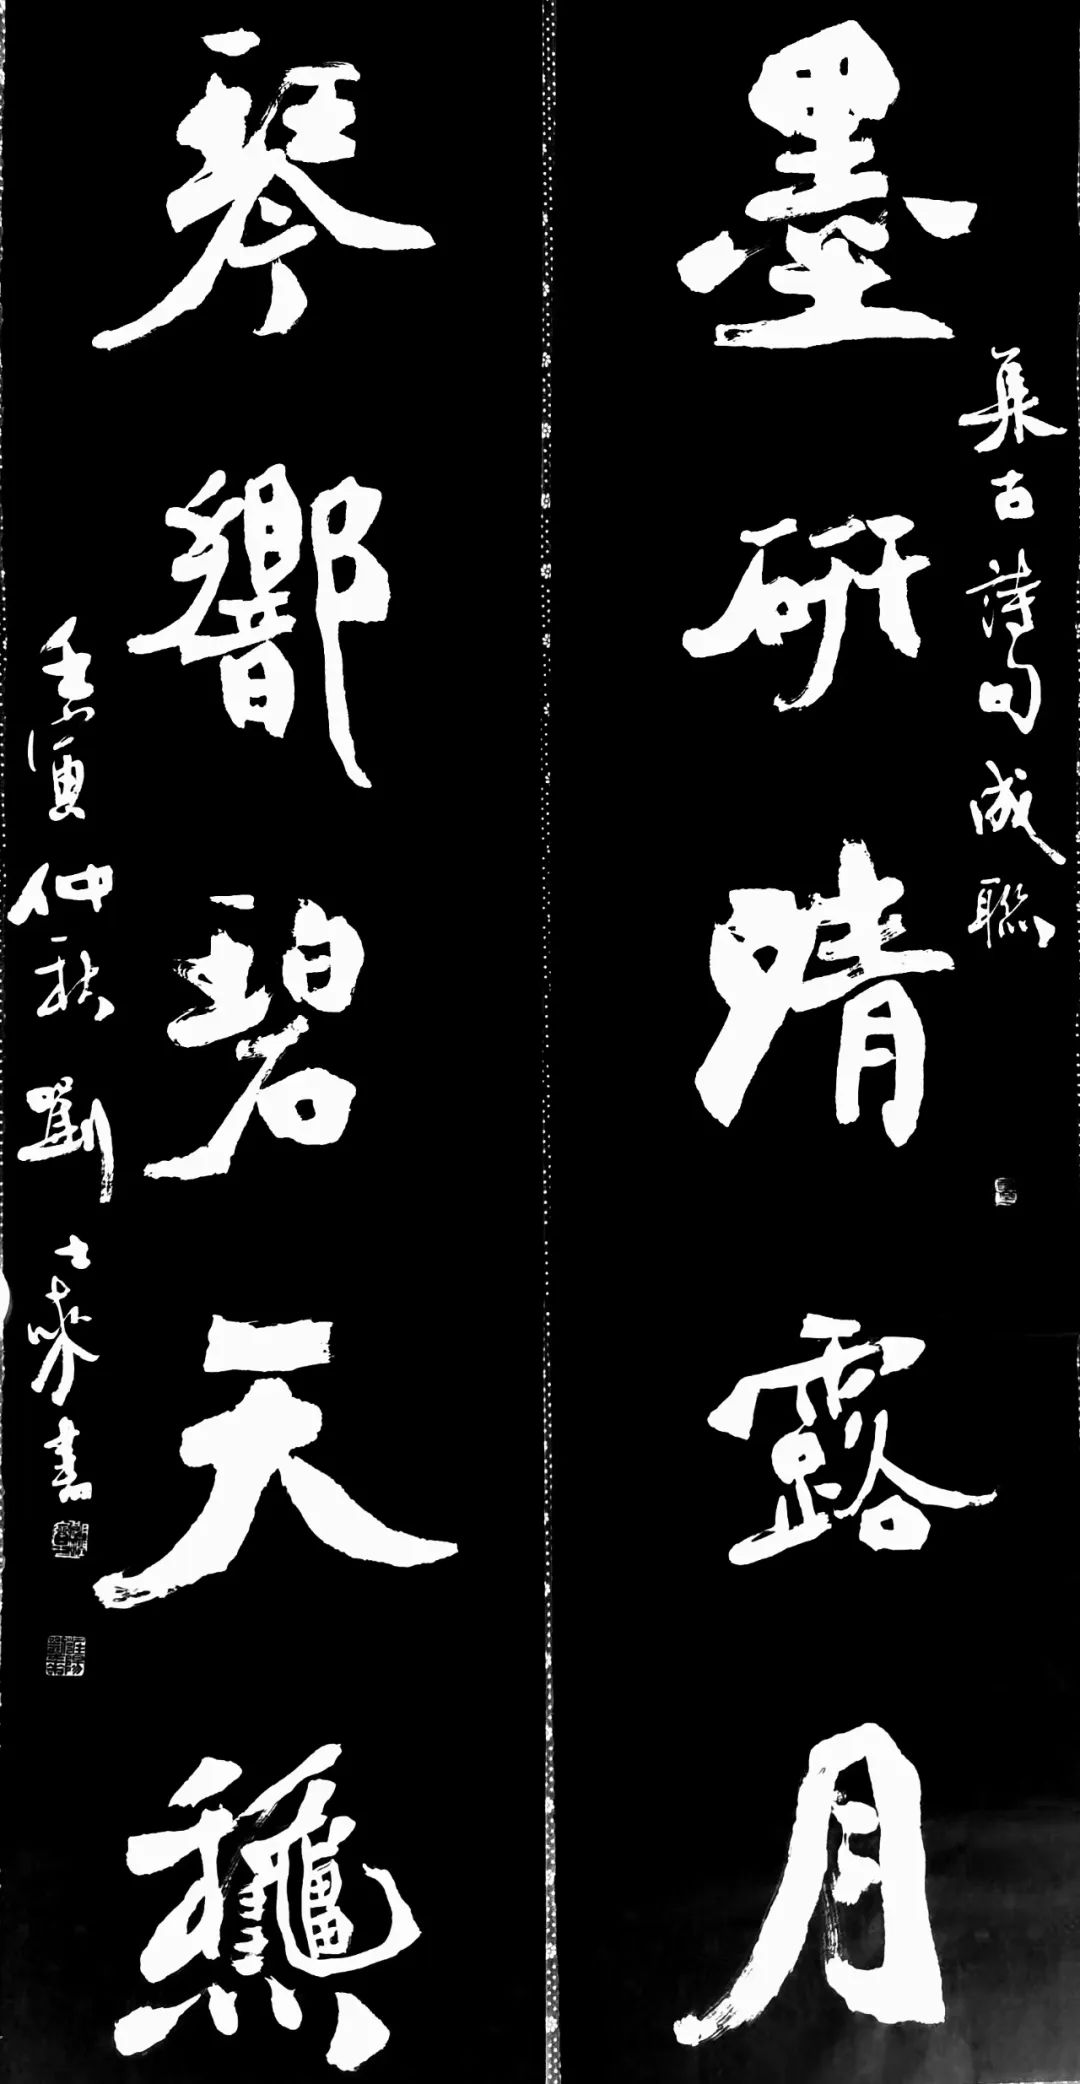 集古詩句成聯
墨研清露月
琴響碧天龝
壬寅仲秋劉士書